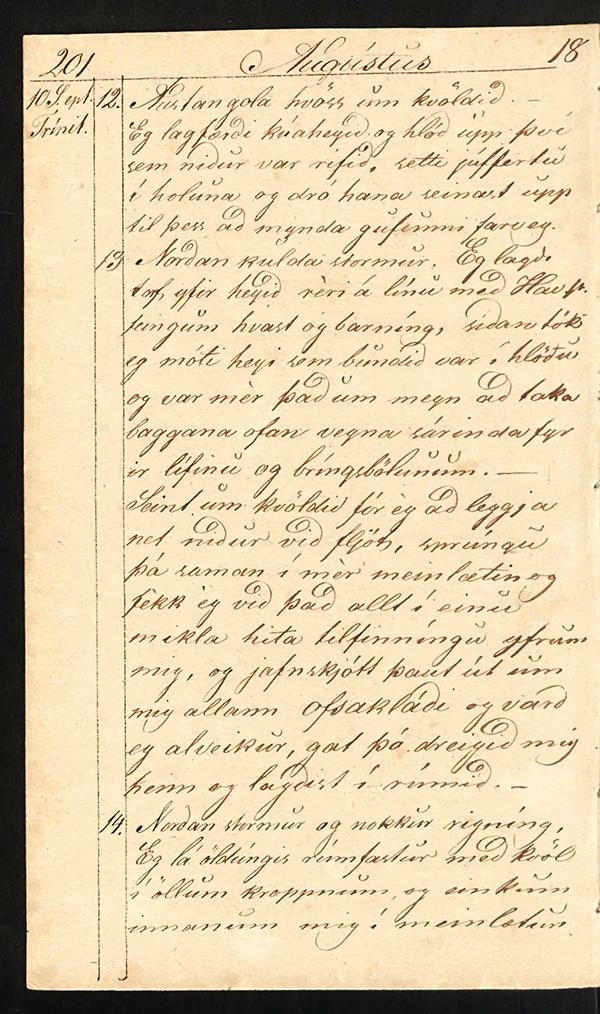 201 Augústus 18
10 S. ept. 12. Austangola hvöss um kvöldid. –
Trínit. Eg lagfærdi kúaheyid og hlód upp því
sem nidur var rifid, setti júffertu
í holuna og dró hana seinast upp
til þess ad mynda gufunni farveg.
13 Nordan kulda stormur. Eg lagdi
torf yfir heyid rèri á línu med
feingum hvast og barníng, sídan tók
eg móti heyi sem bundid var í hlödu
og var mèr þad um megn ad taka
baggana ofan vegna sárinda fyr
ir lífinu og bríngsbölunum. –
Seint um kvöldid fór èg ad leggja
net nidur vid fljót, sprúngu
þá saman í mèr meinlætin og
fèkk èg vid þad allt í einu
mikla hita tilfinníngu yfrum
mig, og jafnskjótt þaut út um
mig allann ofsakládi og vard
eg alveikur, gat þó dreigid mig
heim og lagdist í rúmid. –
14. Nordan stormur og nokkur rigníng,
Eg lá öldúngis rúmfastur med kvöl
í öllum kroppnum, og einkum
innanum mig í meinlætun